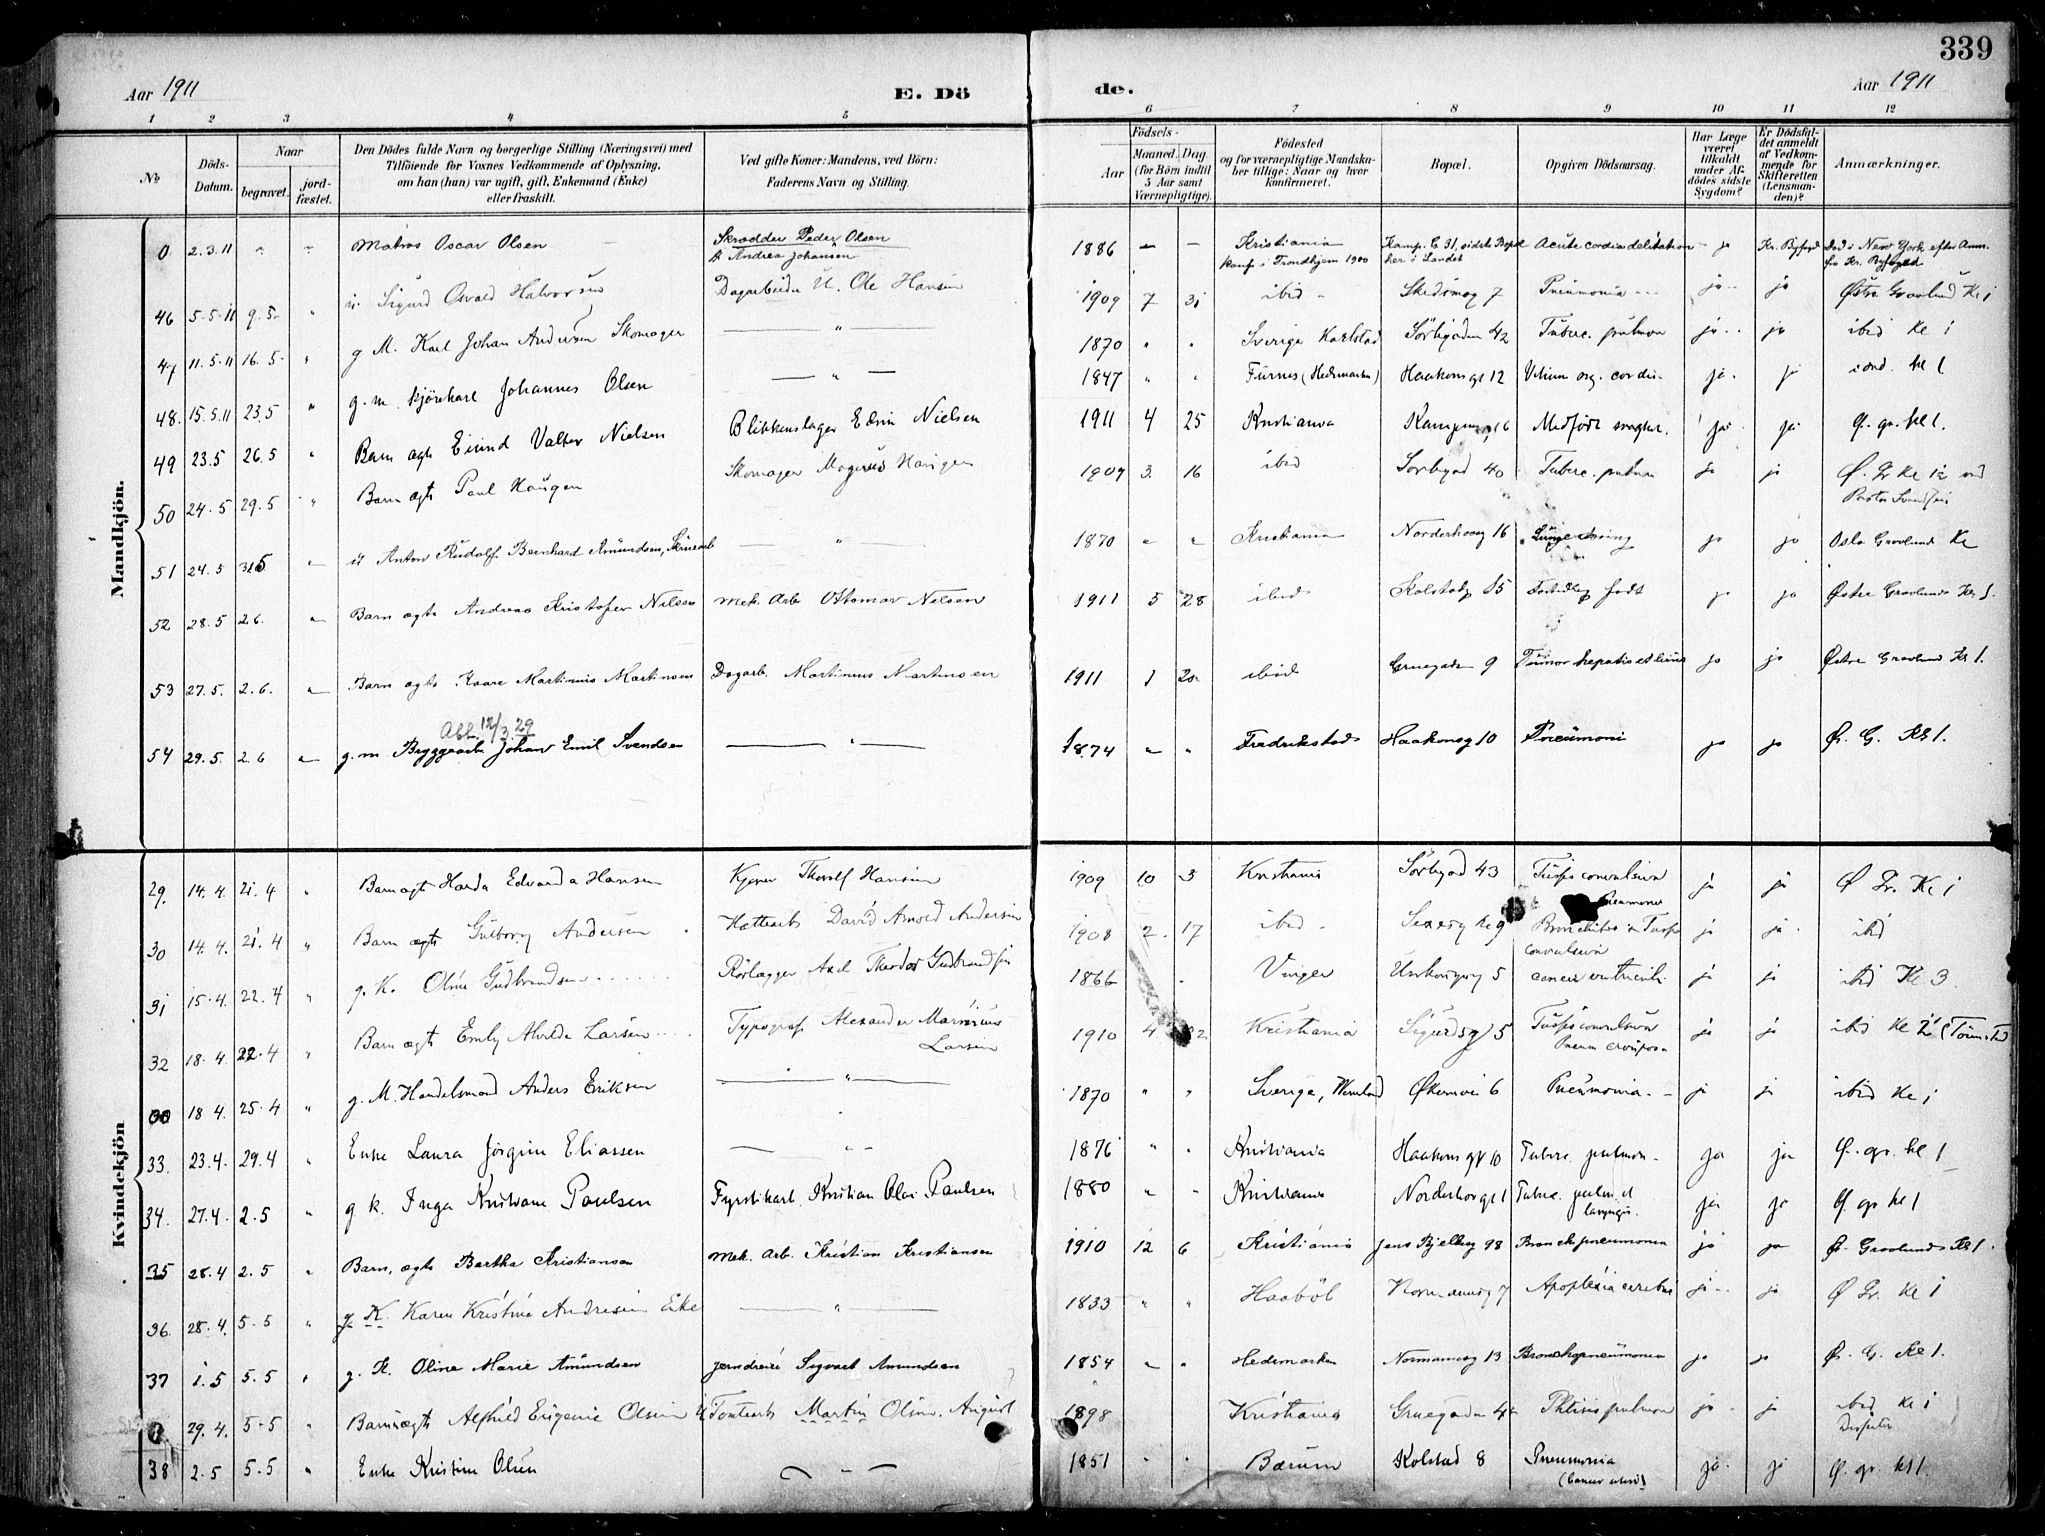 339
Aar 1911
E. Dö
de.
Aar 1911
1 2 3 4 5 6 7 8 9 10 11 12
№
Döds-Datum.
Naar
begravet.
jordfæstet.
Den Dödes fulde Navn og borgerlige Stilling (Næringsvei) med
Tilföiende for Voxnes Vedkommende af Oplysning,
om han (hun) var ugift, gift, Enkemand (Enke)
eller fraskilt.
Ved gifte Koner: Mandens, ved Börn:
Faderens Navn og Stilling.
Födsels-
Aar
Maaned. Dag
(for Börn indtil
5 Aar samt
Værnepligtige).
Födested
og for værnepligtige Mandska-
ber tillige: Naar og hvor
konfirmeret.
Bopæl.
Opgiven Dödsaarsag.
Har Læge
været
tilkaldt
under Af-
dödes sidste
Sygdom?
Er Dödsfal-
det anmeldt
af Vedkom-
mende for
Skifteretten
(Lensman-
den)?
Anmærkninger.
Mandkjön.
0 2.3.11 " " Matros Oscar Olsen Skrædder Peder Olsen 1886 — — Kristiania Kamp. G. 31, sidste Bopæl Acute cordia delitation ja Kr. Byfoged Död i New York, efter Anm.
& Andrea Johansen konf i Trondhjem 1900 her i Landet fra Kr. Byfoged
46 5.5.11 9.5. " u. Sigurd Osvald Halvorsen Dagarbeider U. Ole Hansen 1909 7 31 ibid Skedsmog 7 Pneumonia ja ja Østre Gravlund Kl 1
47 11.5.11 16.5. " g M. Karl Johan Andersen Skomager — " — 1870 " " Sverige Karlstad Sörligaden 42 Tuberc. pulmon ja ja ibid Kl 1
48. 15.5.11 23.5 " g.m. kjörekarl Johannes Olsen — " — 1847 " " Furnes (Hedemarken) Haakonsgt 12 Vitium org. cordis ja ja ibid. kl 1.
49 23.5 26.5 " Barn ægte Eivind Valter Nielsen Blikkenslager Edvin Nielsen 1911 4 25 Kristiania Kampeng. 16 Medfödt svaghet. ja ja Ø. gr. kl 1.
50 24.5 29.5 " Barn ægte Paul Haugen Skomager Magnus Haugen 1909 3. 16 ibid Sörligad 40 Tuberc. pulmon ja ja Ø. Gr Kl 1 ved
Pastor
51 24.5 31.5 " u Anton Rudolf Bernhard Amundsen, — " — 1870 " " Kristiania Norderhovg 16 ja ja Oslo Gravlund Kl
52 28.5 2.6. " Barn ægte Andreas Kristofer Nilsen Mek. Arb. Ottomar Nilsen 1911 5 28 ibid Kolstadg 15 Fortidlig födt ja ja Østre Gravlund Kl 1.
53 27.5. 2.6. " Barn ægte Kaare Martinius Martinsen Dagarb. Martinius Martinsen 1911 1 20 ibid Gruegaden 9 Tumor hepatis et ja ja Østre Gravlund Kl 1.
12/3.29
54 29.5. 2.6 " g.m. Bryggearb Johan Emil Svendsen — " — 1874 " " Fredrikstad Haakonsg 10 Pneumoni ja ja Ø. G. Kl 1.
Kvindekjön
29. 14.4. 21.4 " Barn ægte Edvarda Hansen Kjører Thorolf Hansen 1909 10 3 Kristiania Sörligad 43 Tussis convulsiva ja ja Ø Gr. Kl 1
Pneumonia
30 14.4. 21.4 " Barn ægte Gulborg Andersen Hattearb David Arnold Andersen 1908 2. 17 ibid Bronchitis Tussis ja ja ibid
convulsiva
31 15.4. 22.4 " g. K. Oline Gudbrandsen Rörlægger Axel Theodor Gudbrandsen 1866 . Vinger 5 cancer ventriculi ja ja ibid Kl 3
32 18.4. 22.4 " Barn ægte Emly Alvilde Larsen Typograf Alexander Marinius 1910 4 Kristiania Sigurdsg 5 Tussis convulsiva ja ja ibid Kl 2
Larsen Pneum crouposa
00 18.4. 25.4 " g. M. Handelsmand Anders Eriksen — " — 1870 " " Sverige, Wermland Økernvei 6 Pneumonia. ja ja ibid Kl 1
33. 23.4. 29.4 " Enke Laura Jörgine Eliassen — " — 1876 " " Kristiania Haakonsgt 10 Tuberc. pulmon. ja ja Ø. gr. kl 1
34. 27.4. 2.5 " g k. Inga Kristiane Paulsen Fyrstikarb. Kristian Olai Paulsen 1880 " " Kristiania Norderhovgt 1 Tuberc. pulm. et ja ja Ø. gr kl 1
laryngis.
35 28.4 2.5 " Barn, ægte Bertha Kristiansen Mek. Arb. Kristian Kristiansen 1910 12 6 Kristiania Jens Bjelkeg 98 Bronchpneumonia ja ja Ø. Gravlund Kl 1.
36. 28.4. 5.5 " g. K. Karen Kristine Andresen Enke — " — 1833 " " Haaböl Normannsg 7 Apoplexia cerebri ja ja Ø Gr. Kl 1
37 1.5 5.5 " g. K. Oline Marie Amundsen Jerndreier Sigvart Amundsen 1854 " " Hedemarken Normannsg 13 Bronchopneumonia ja ja Ø. G. Kl 1.
0 29.4. 5.5 " Barn ægte Alfhild Eugenie Olsen Tomtearb Martin Olsen. August 1898 Kristiania Gruegaden 4 Phtisis pulmon ja ja ibid Kl 1
38 2.5 5.5 " Enke Kristine Olsen — " — 1851 " " Bærum Kolstad 8 Pneumonia ja ja Ø. gr. kl 1.
(Cancer uteri)